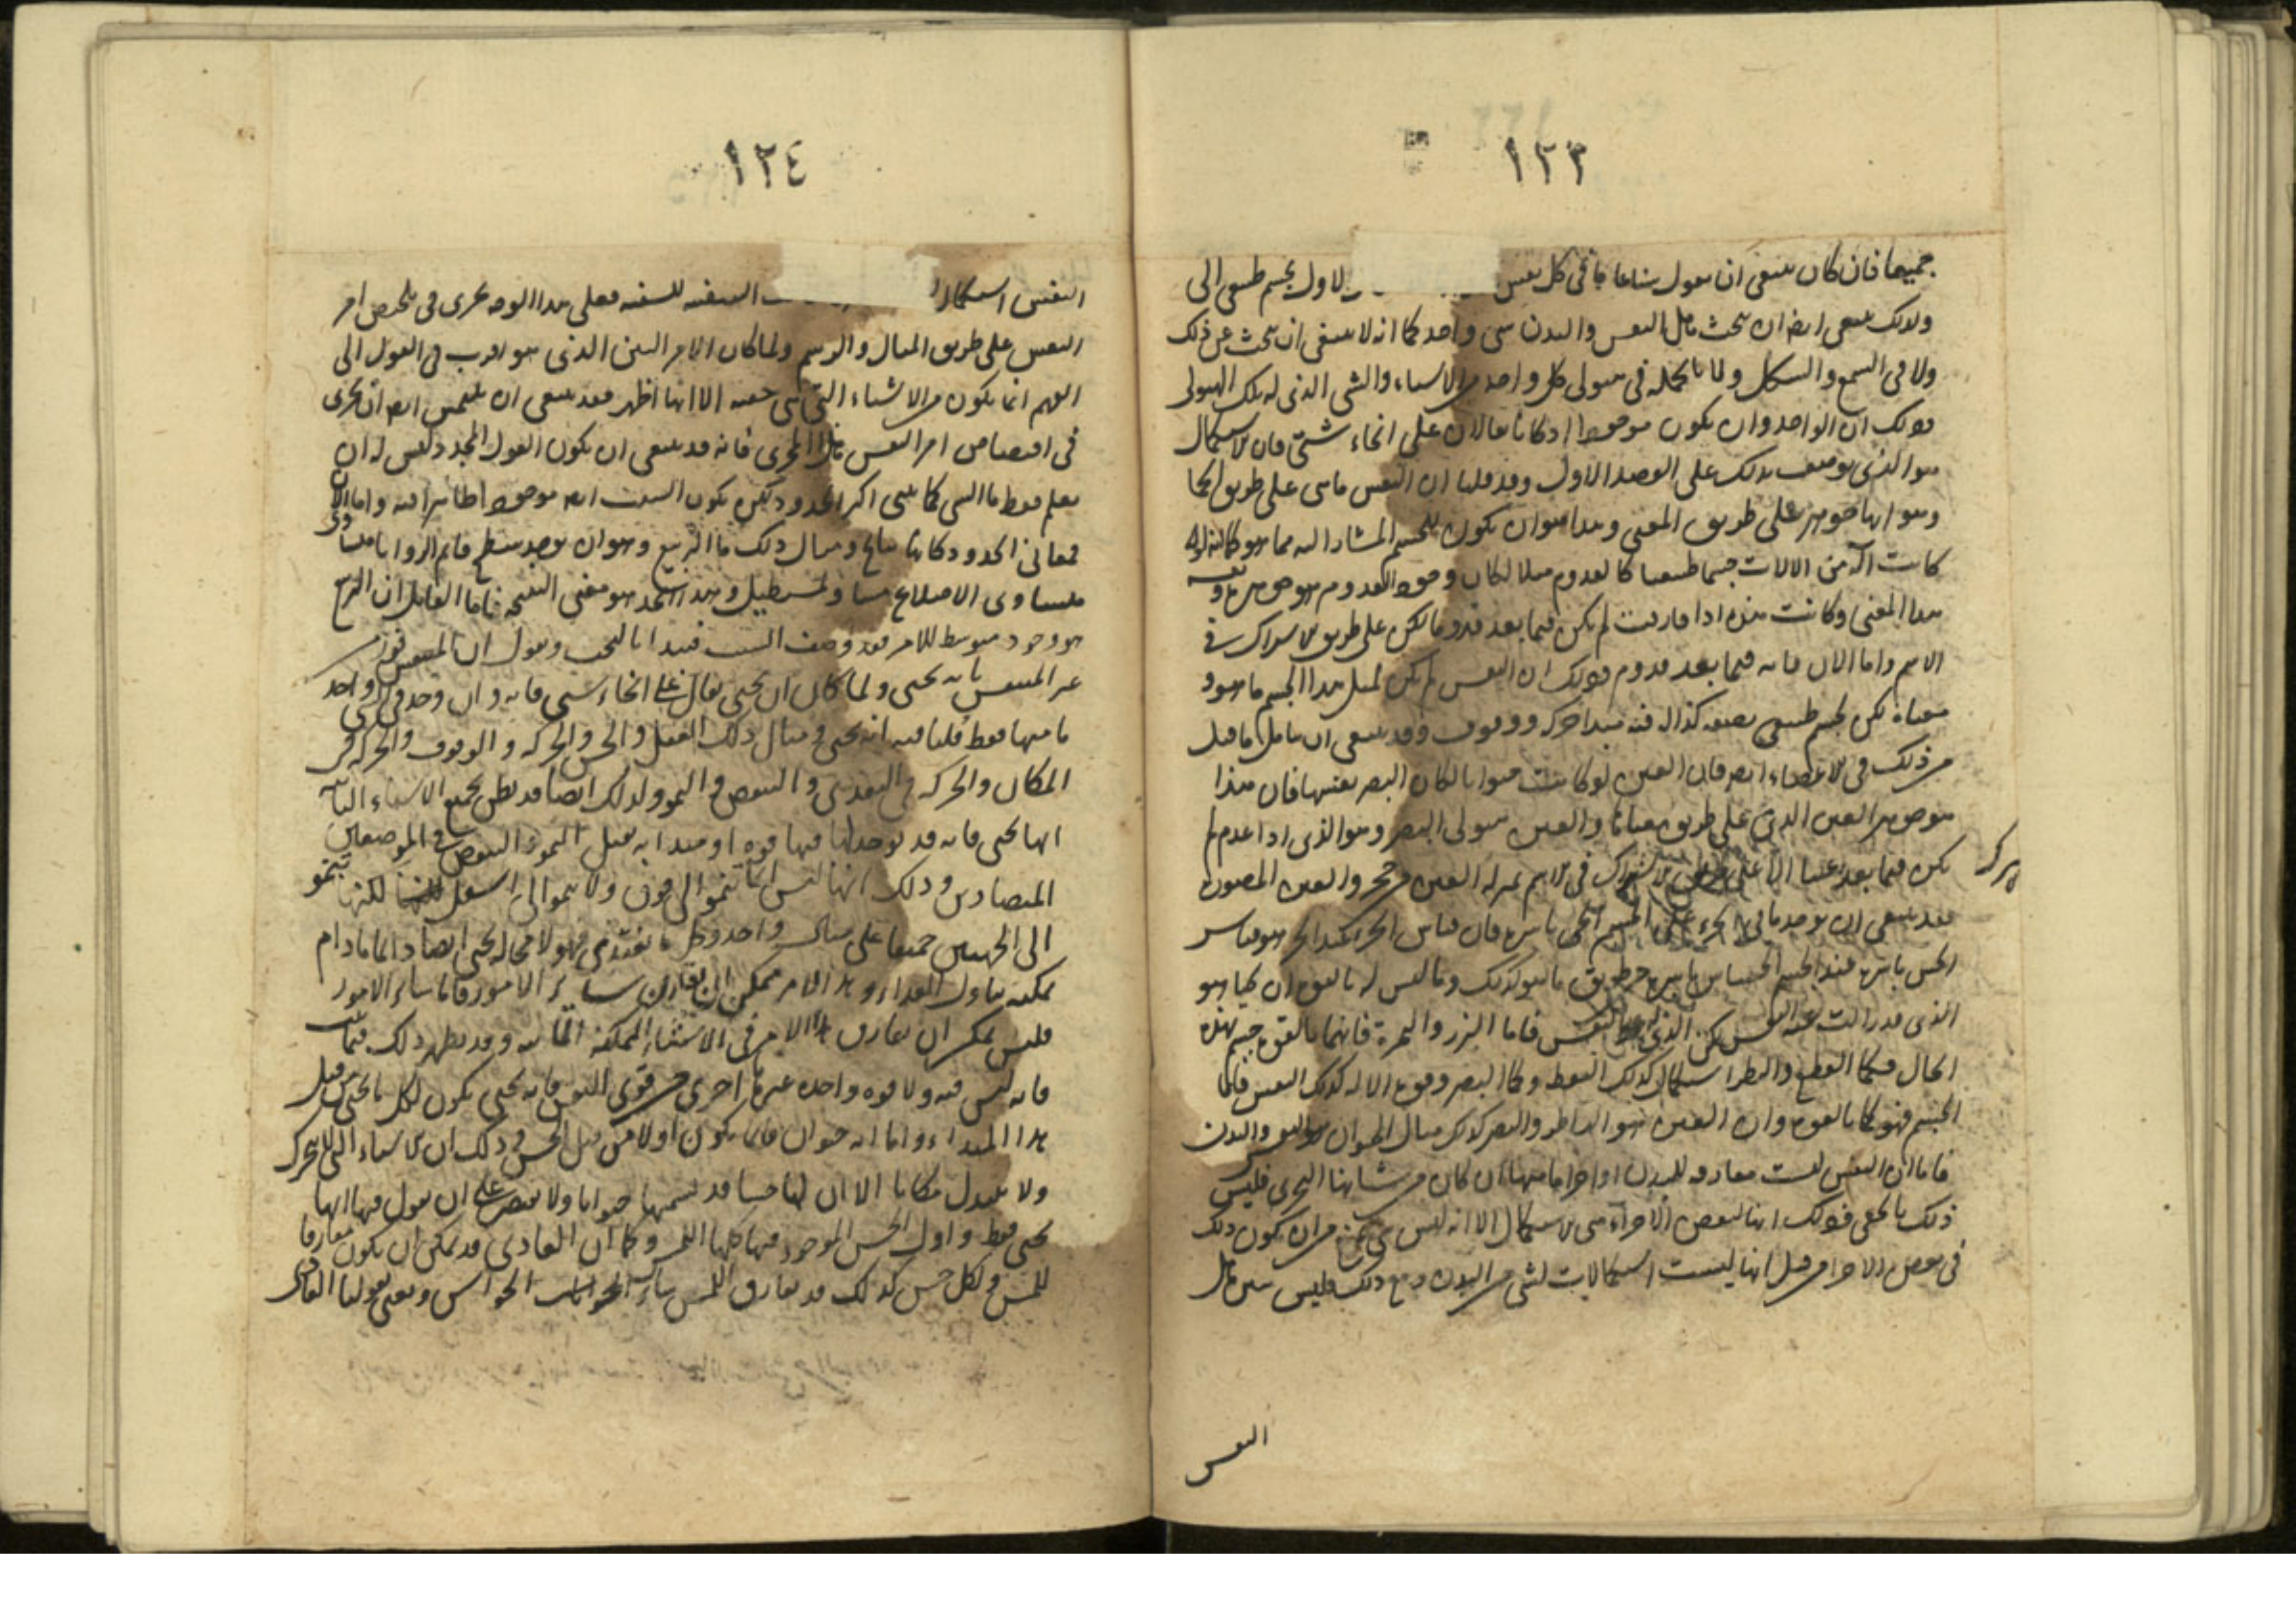 ١٢٣
جميعا فان كان ينبغى ان نقول شاعا ما فى كل نفس الاول لجسم طبيعى الى
ولذلك ينبغى ايضا ان نبحث هل النفس والبدن شى واحد كما انه لا ينبغى ان نبحث عن ذلك
ولا فى الشمع والشكل ولا بالجملة فى هيولى كل واحد من الاشياء والشى الذى له تلك الهيولى
وذلك ان الواحد وان يكون موجودا اذ كانا يقالان على انحاء شتى فان الاستكمال
هو الذى يوصف بذلك على القصد الاول وقد قلنا ان النفس ما هى على طريق
وهو انها جوهر على طريق المعنى وهذا هو ان يكون للجسم المشار اليه مما هو كما انه لو
كانت آلة من الالات جسما طبيعيا كالقدوم مثلا لكان وجود القدوم هو جوهره ونفسه
هذا المعنى وكانت هذه اذا فارقت لم يكن فيما بعد قدوما لكن على طريق الاشتراك فى
الاسم واما الان فانه فيما بعد قدوم وذلك ان النفس لم تكن لمثل هذا الجسم ما هو و
معناه لكن لجسم طبيعى بصفة كذا له فيه مبدا حركة ووقوف وقد ينبغى ان نتامل ما قيل
من ذلك فى الاعضاء ايضا فان العين لو كانت حيوانا لكان البصر نفسها فان هذا
هو جوهر العين الذى على طريق معناها والعين هيولى البصر وهو الذى اذا عدم لم
يكن فيما بعد عينا الا على طريق الاشتراك فى الاسم بمنزلة العين من حجر والعين المصورة
فقد ينبغى ان يوجد ما فى الجزء على الجسم الحى باسره فان قياس الجزء عند الجزء هو قياس
الحس باسره عند الجسم الحساس باسره من طريق ما هو كذلك وما ليس له بالقوة ان يحيا هو
الذى قد زالت عنه النفس لكن الذى له النفس فاما البزر والثمرة فانهما بالقوة جسم بهذه
الحال فكما القطع والنظر استكمال كذلك اليقظة وكما البصر وقوة الالة كذلك النفس فاما
الجسم فهو كما بالقوة وان العين هو الناظر والبصر كذلك مثال الحيوان هو النفس والبدن
فاما ان النفس ليست مفارقة للبدن او اجزاء ما منها ان كان من شانها التجزى فليس
ذلك بالخفى وذلك انها لبعض الاجزاء هى الاستكمال الا انه ليس شى يمنع من ان يكون ذلك
فى بعض الاجزاء من قبل انها ليست استكمالات لشى من البدن ومع ذلك فليس يتبين هل
النفس
١٢٤
النفس استكمال السفينه للسفينه فعلى هذا الوجه نجرى فى تلخيص امر
النفس على طريق المثال والرسم ولما كان الامر البين الذى هو اقرب فى القول الى
الفهم انما يكون من الاشياء التى هى خفيه الا انها اظهر فقد ينبغى ان نلتمس ايضا ان نجرى
فى اقتصاص امر النفس هذا المجرى فانه قد ينبغى ان يكون القول المحدد ليس له ان
يعلم فقط ما الشى كما ينبى اكثر الحدود لكن يكون السبب ايضا موجودا ظاهرا فيه واما الان
فمعانى الحدود كانها نتايج ومثال ذلك ما التربيع وهو ان يوجد سطح قايم الزوايا متساوى
متساوى الاضلاع مساو لمستطيل وهذا الحد هو معنى النتيجه فاما القايل ان التربيع
هو وجود متوسط للامر فقد وصف السبب فنبدا بالبحث ونقول ان المتنفس قد
عن المتنفس بانه يحيى ولما كان ان يحيى يقال على انحاء شتى فانه وان وجد فى شى واحد
ما منها فقط قلنا فيه انه يحيى ومثال ذلك العقل والحس والحركة والوقوف والحركة فى
المكان والحركة فى التغذى والنقص والنمو ولذلك ايضا قد يظن بجميع الاشياء النابتة
انها تحيى فانه قد توجد لها فيها قوه او مبدا به تقبل النمو والنقص فى الموضعين
المتضادين وذلك انها ليس انما تنمو الى فوق ولا تنمو الى اسفل لكنها تنمو
الى الجهتين جميعا على مثال واحد وكل ما يغتذى فهو لا محاله يحيى ايضا دايما ما دام
يمكنه تناول الغذاء وهذا الامر ممكن ان يفارق ساير الامور فاما ساير الامور
فليس يمكن ان تفارق هذا الامر فى الاشياء الممكنه المايته وقد يظهر ذلك فيما
فانه ليس فيه ولا قوه واحده غيرها اخرى من قوى النفس فانه يحيى يكون لكل ما يحيى من قبل
هذا المبداء واما انه حيوان فانما يكون اولا من قبل الحس وذلك ان الاشياء التى لا تتحرك
ولا تبدل مكانا الا ان لها حسا قد نسميها حيوانا ولا نقتصر على ان نقول فيها انها
تحيى فقط واول الحس الموجود فيها كلها اللمس وكما ان الغاذى قد يمكن ان يكون مفارقا
للمس ولكل حس كذلك قد يفارق اللمس ساير الحواس ونعنى بقولنا الغاذى